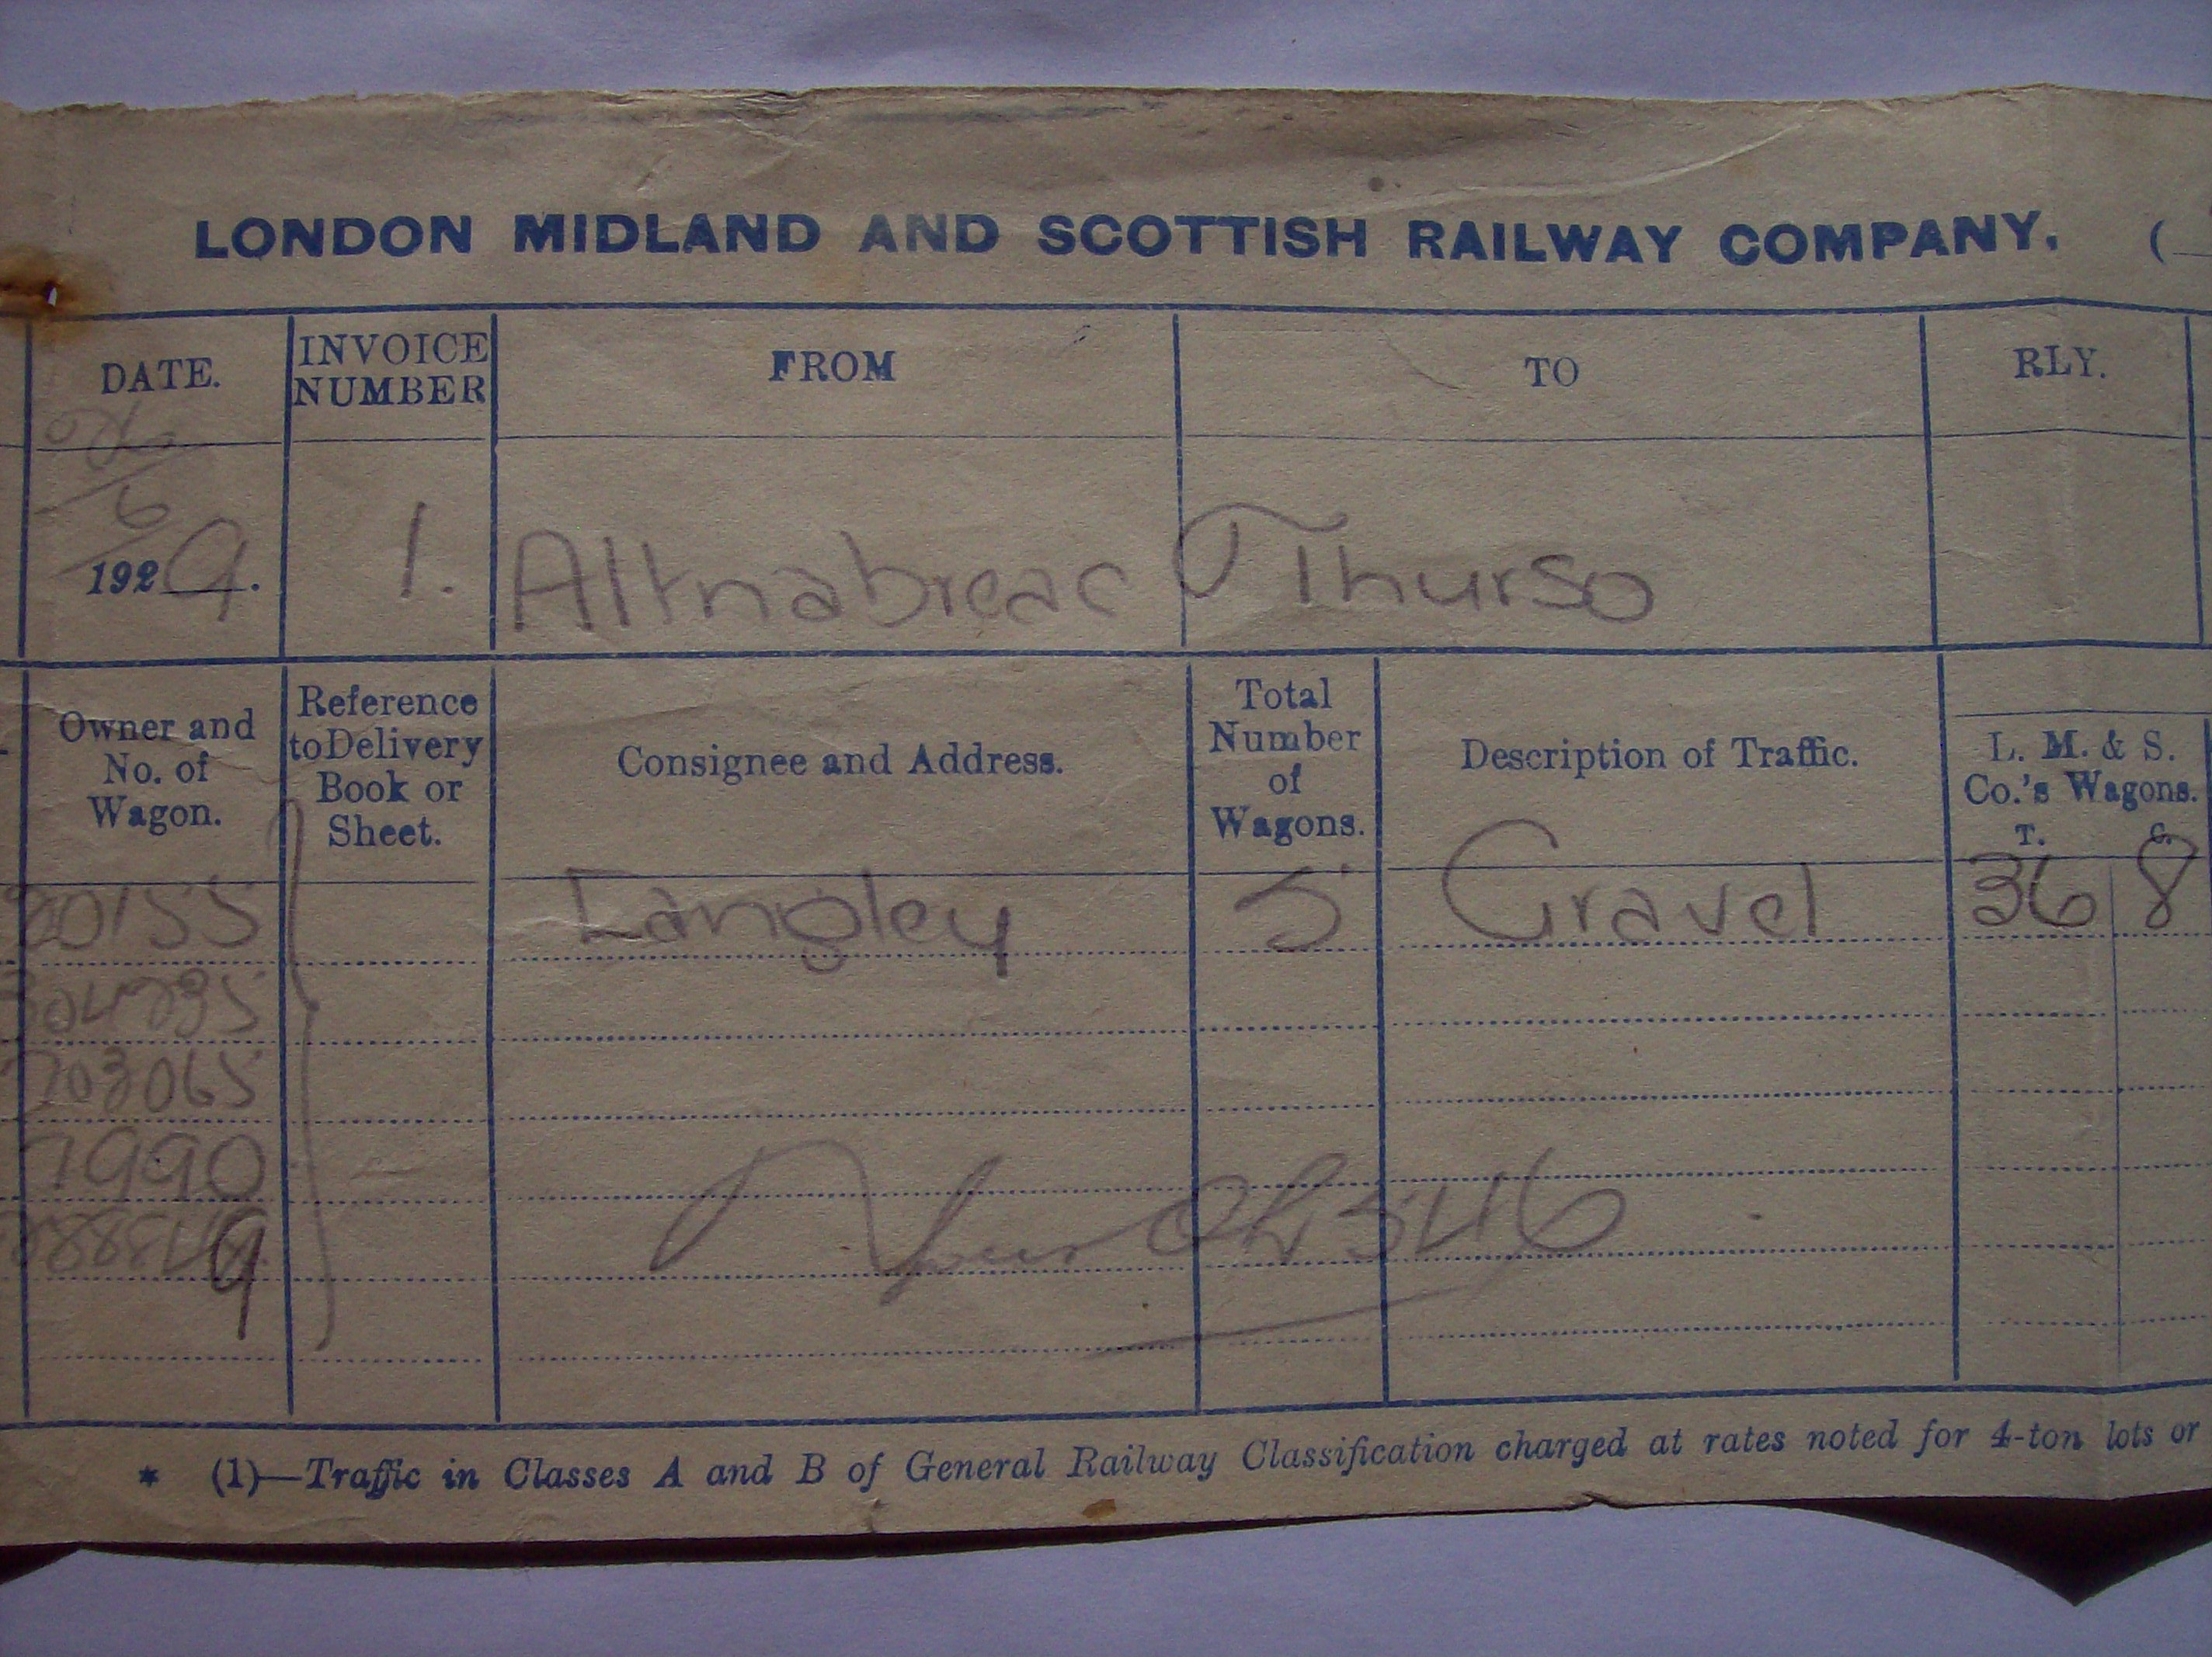 LONDON MIDLAND AND SCOTTISH RAILWAY COMPANY. (
DATE. INVOICE NUMBER FROM TO RLY.
6
1929. 1. Altnabreac Thurso
Owner and No. of Wagon. Reference to Delivery Book or Sheet. Consignee and Address. Total Number of Wagons. Description of Traffic. L. M. & S. Co.'s Wagons. T. C.
Langley 5 Gravel 36 8
7990
* (1)—Traffic in Classes A and B of General Railway Classification charged at rates noted for 4-ton lots or